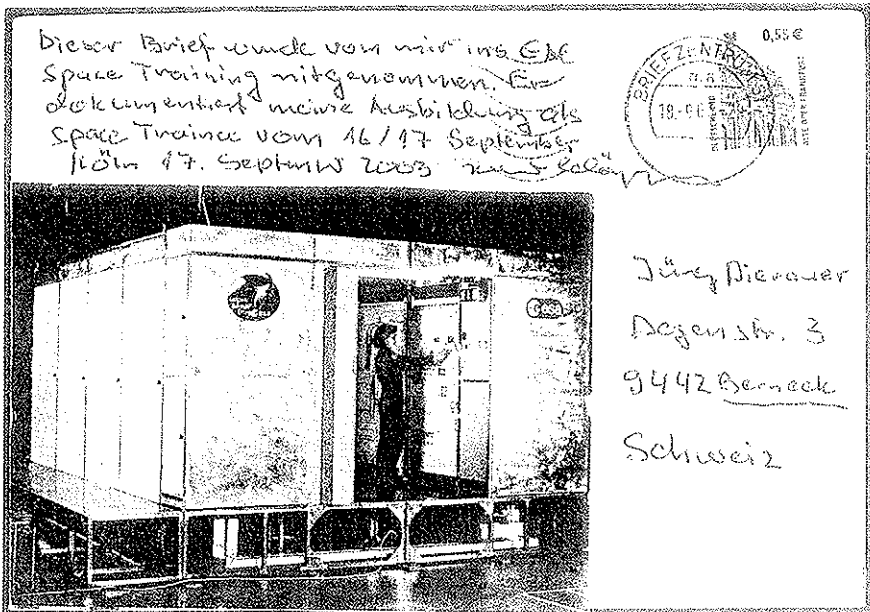 Dieser Brief wurde von mir ins EAC
Space Training mitgenommen. Er
dokumentiert meine Ausbildung als
Space Trainee vom 16/17 September
Köln 17. September 2003
0,55 €
BRIEFZENTRUM
Jürg Dierauer
Degenstr. 3
9442 Berneck
Schweiz